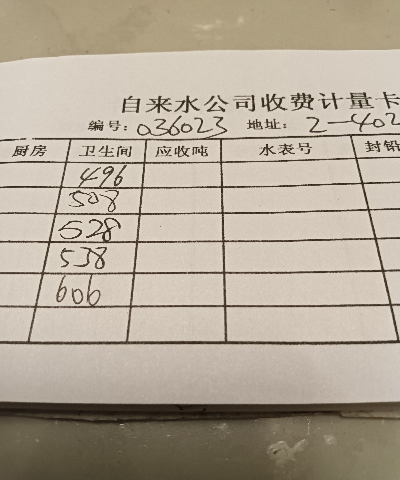 自来水公司收费计量卡
编号：036023 地址：2-402
厨房 卫生间 应收吨 水表号 封铅
496
508
528
538
606